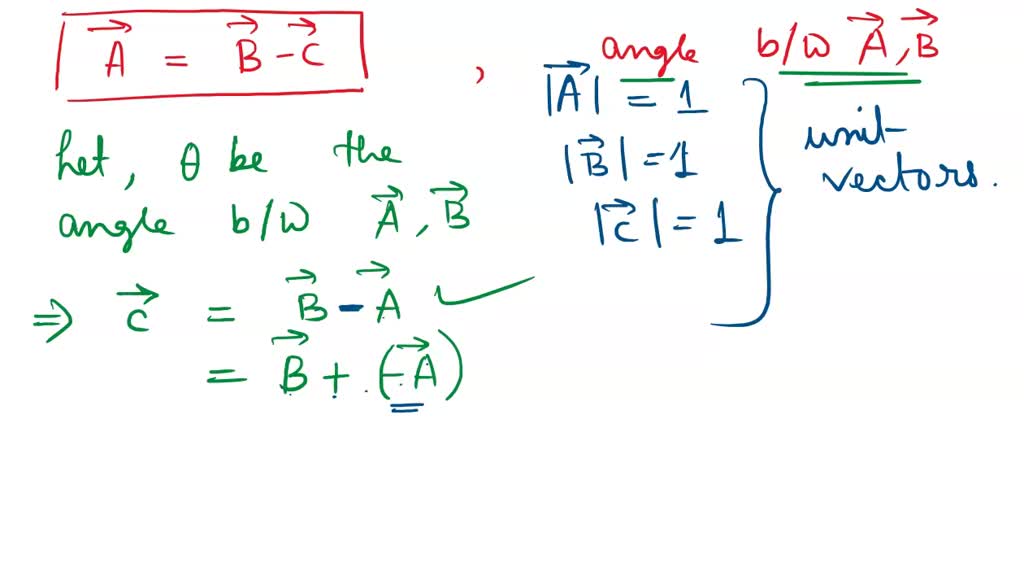 A⃗ = B⃗ - C⃗ , angle b/w A⃗, B⃗
|A⃗| = 1
|B⃗| = 1
|C⃗| = 1
unit vectors.
Let, θ be the
angle b/w A⃗, B⃗
⇒ C⃗ = B⃗ - A⃗ ✓
= B⃗ + (-A⃗)